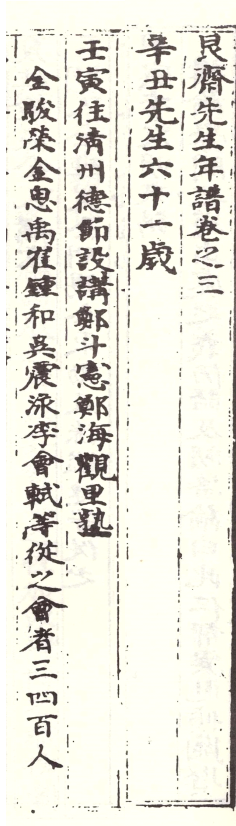 艮齋先生年譜卷之三
辛丑先生六十一歲
壬寅往淸州德節設講鄭斗憲鄭海觀里塾
金駿榮金思禹崔鍾和吳震泳李會軾等從之會者三四百人